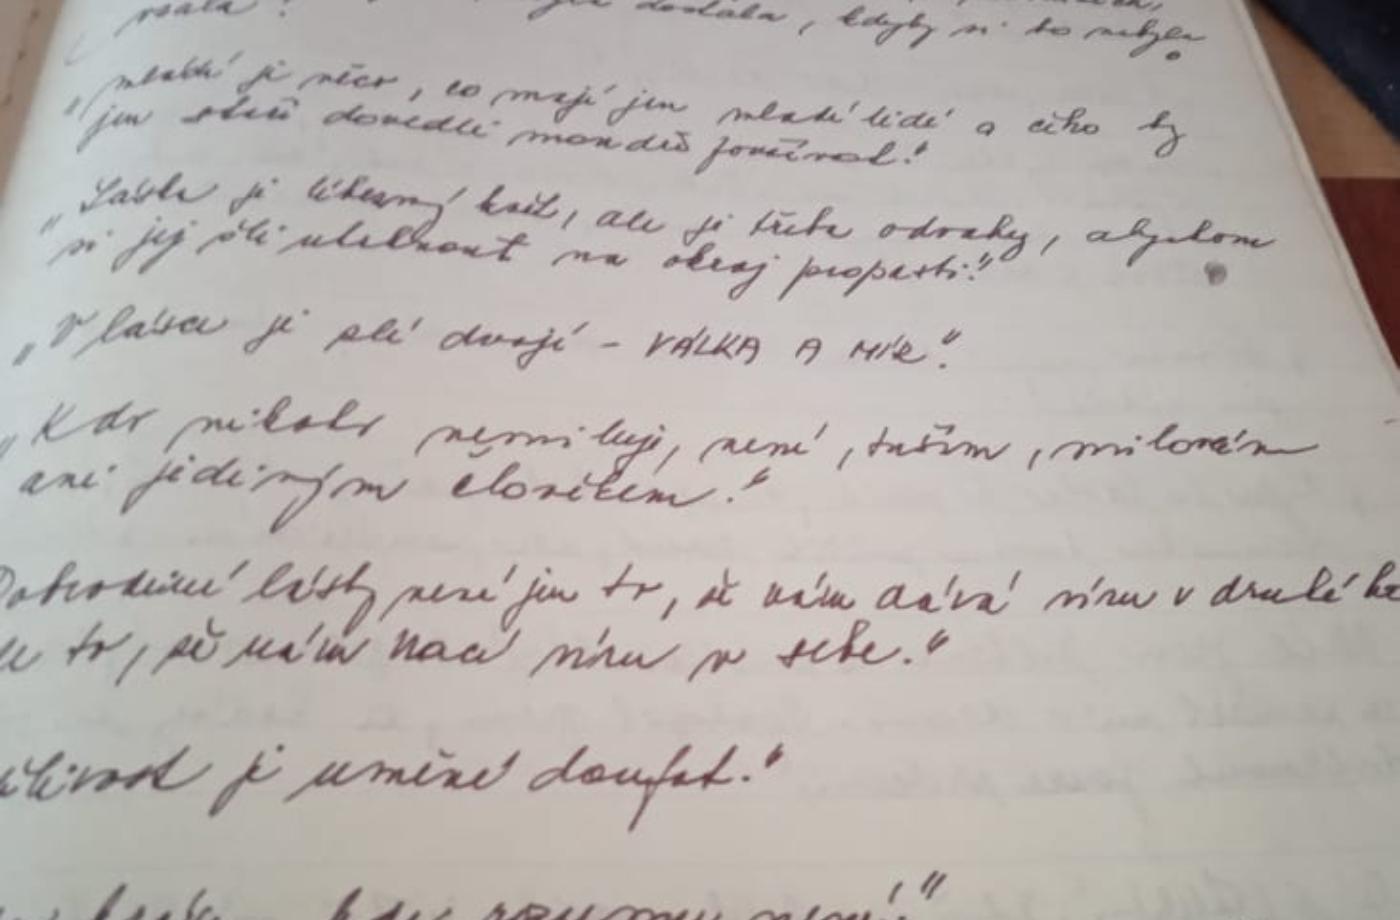 dostala, kdyby si to nebyla
„mládí je něco, co mají jen mladí lidé a čeho by
jen staří dovedli moudře používat."
„Láska je líbezný květ, ale je třeba odvahy, abychom
si jej šli utrhnout na okraj propasti."
„V lásce je zlé dvojí – VÁLKA A MÍR."
„Kdo nikoho nemiluje, není, tuším, milován
ani jediným člověkem."
Dobrodiní lásky není jen to, že nám dává víru v druhého
to, že nám vrací víru v sebe."
je umění doufat."
kdy rozumu není"